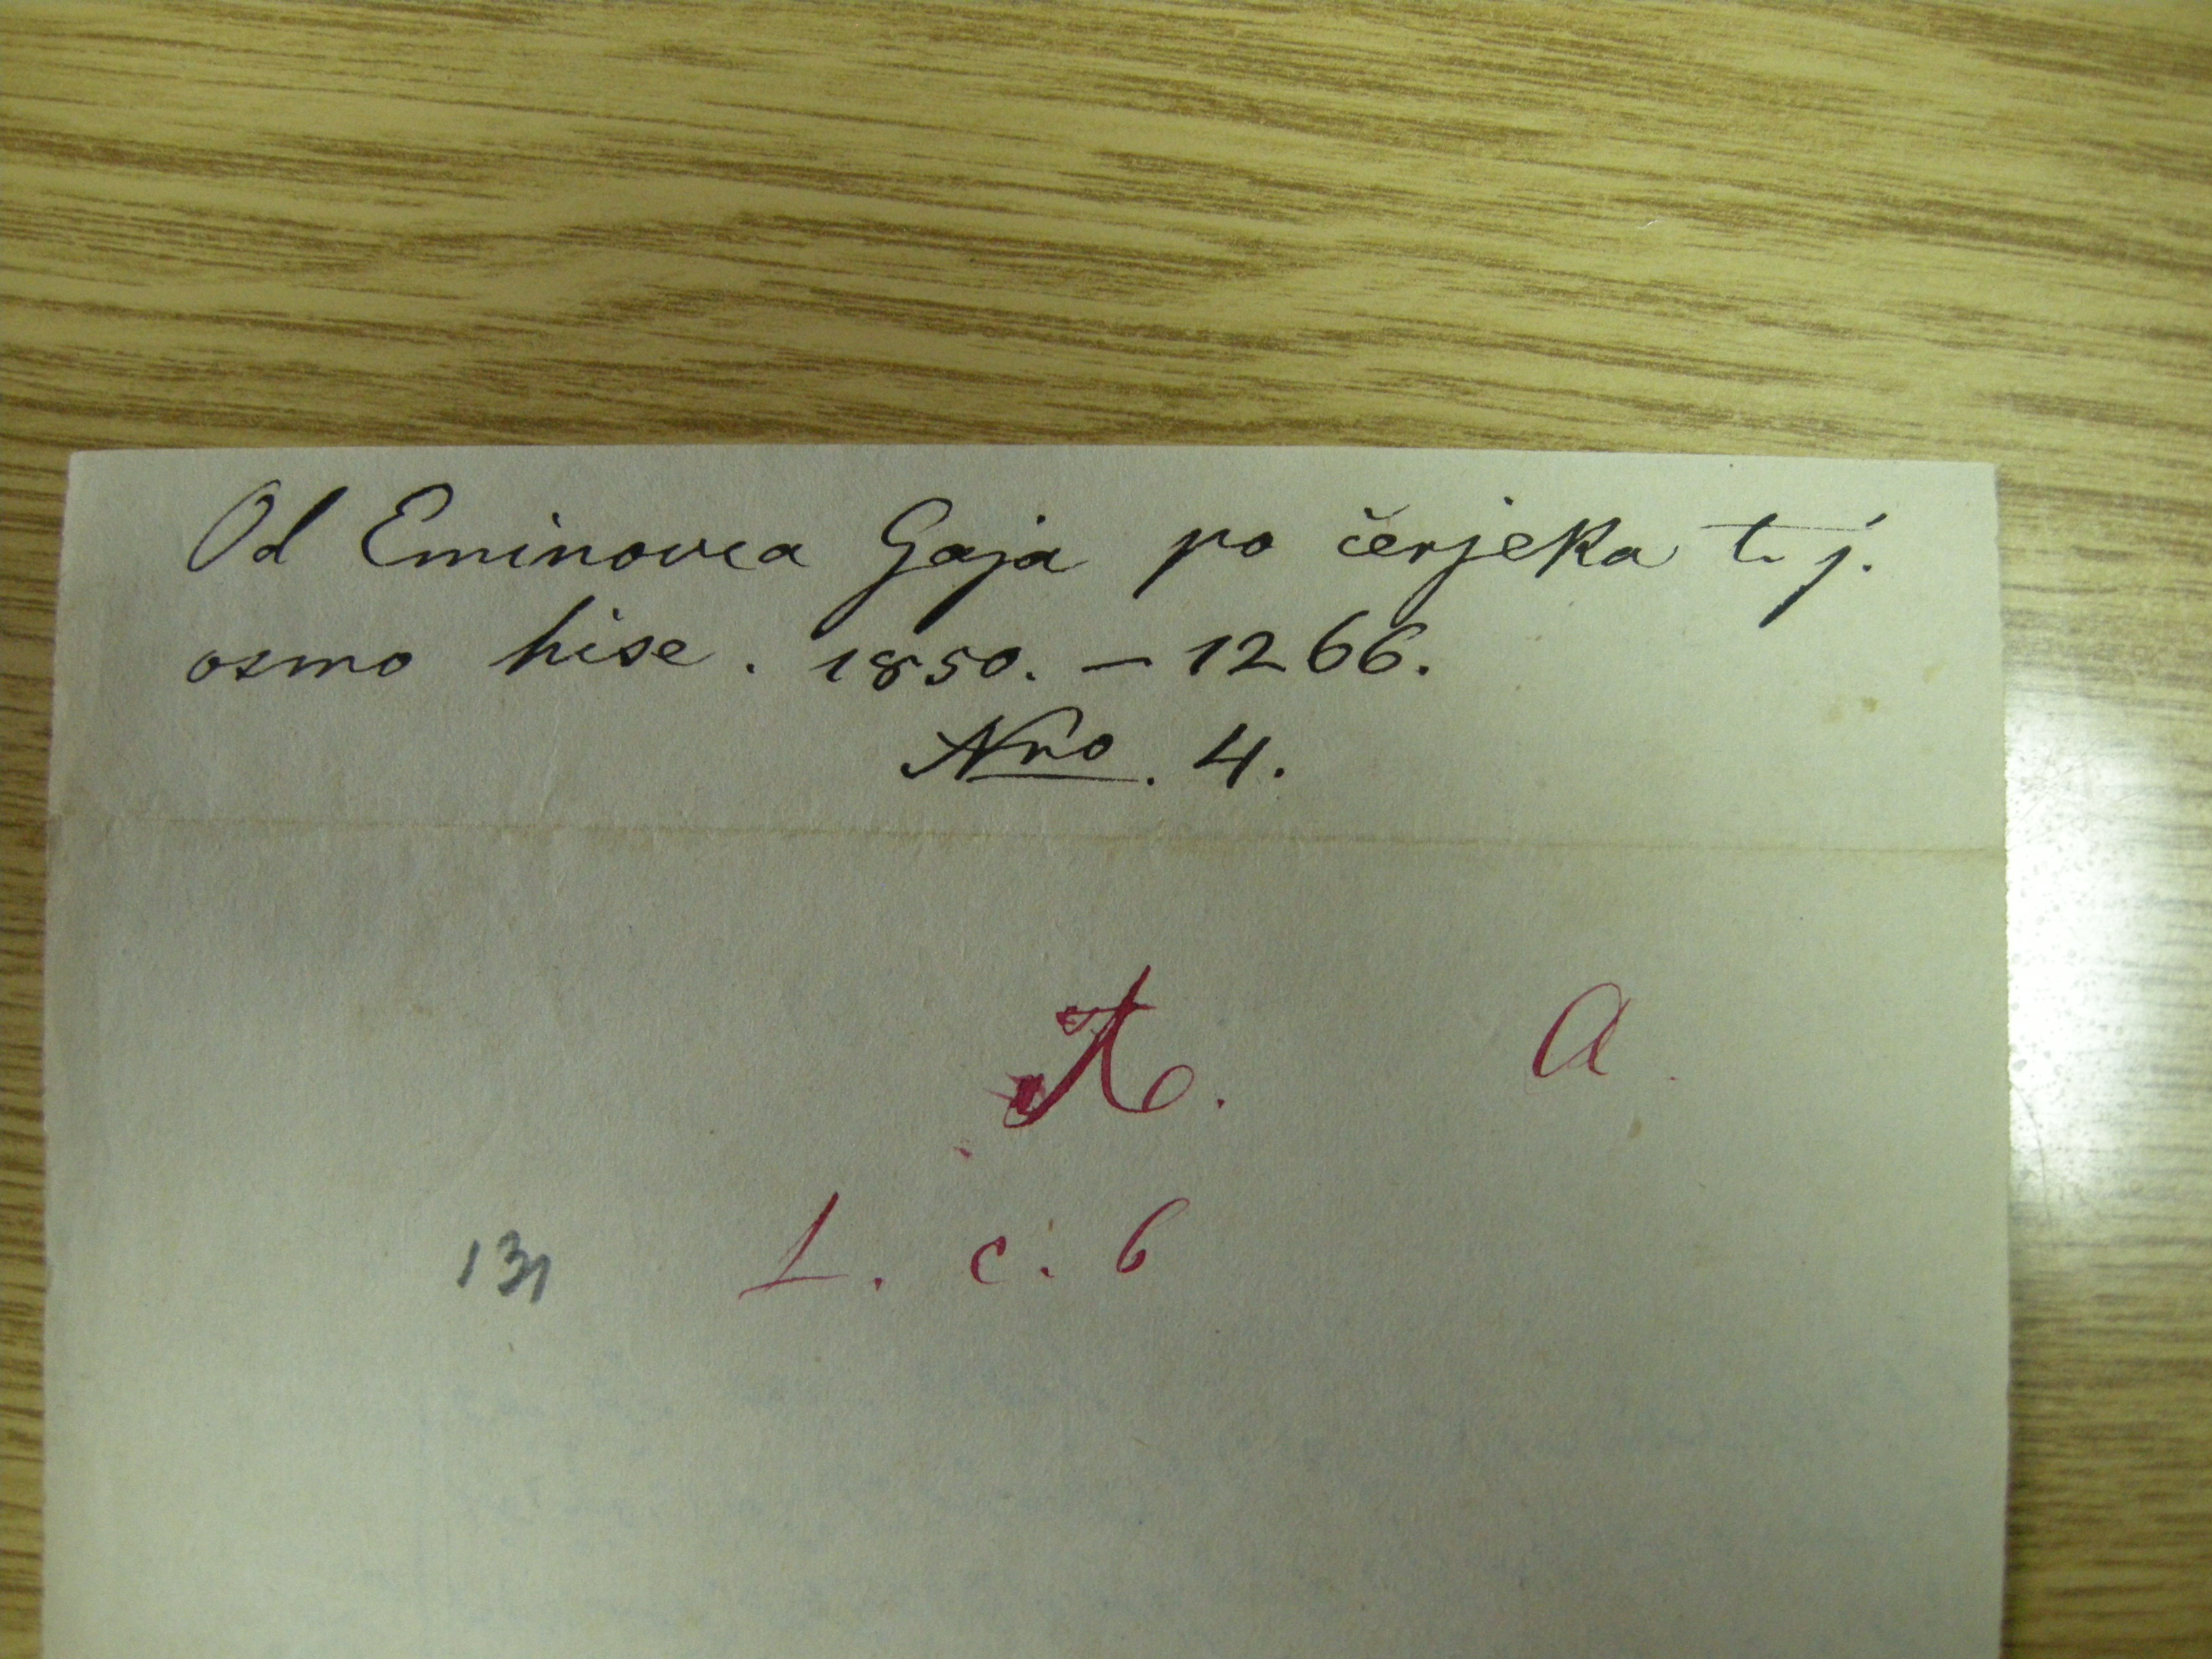 Od Eminovca Gaja po čerjeka t. j.
osmo hise. 1850. — 1266.
Nro. 4.
A.
131 L. c. 6